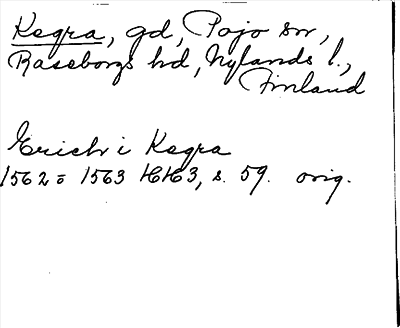 Kegra, gd, Pojo sn,
Raseborgs hd, Nylands l.,
Finland
Erich i Kegra
1562 = 1563 HH3, s. 59. orig.